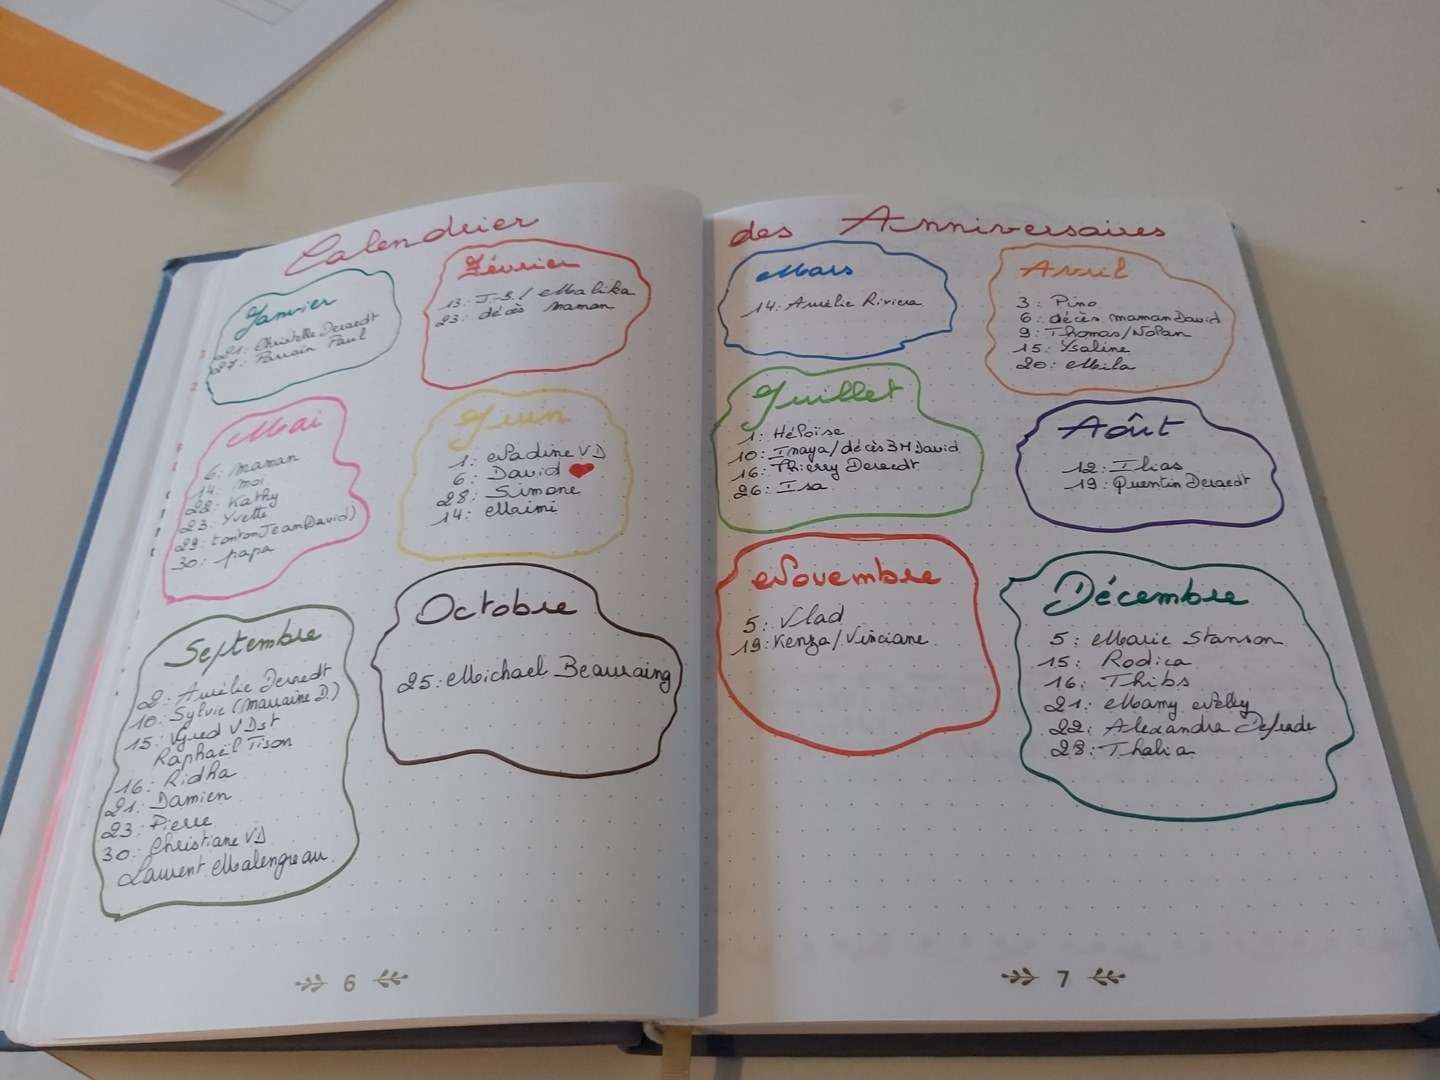 Calendrier des Anniversaires
Janvier
21: Christelle Deraedt
27: Parrain Paul
Février
13: J.S./ Malika
23: décès maman
Mars
14: Aurélie Riviera
Avril
3: Pino
6: décès maman David
9: Thomas/Nolan
15: Ysaline
20: Mila
Mai
6: maman
14: moi
22: Kathy
23: Yvette
29: tonton Jean (David)
30: papa
Juin
1: Nadine VD
6: David ❤
28: Simone
14: Maimi
Juillet
1: Héloïse
10: Inaya/décès BM David
16: Thierry Deraedt
26: Isa
Août
12: Ilias
19: Quentin Deraedt
Septembre
2: Aurélie Deraedt
10: Sylvie (marraine D.)
15: VDst
Raphaël Tison
16: Ridha
21: Damien
23: Pierre
30: Christiane VD
Laurent Malengreau
Octobre
25: Michael Beauraing
Novembre
5: Vlad
19: Kenza/Vinciane
Décembre
5: Marie Stanson
15: Rodica
16: Thibs
21: Mamy Nelly
22: Alexandra
28: Thalia
6
7